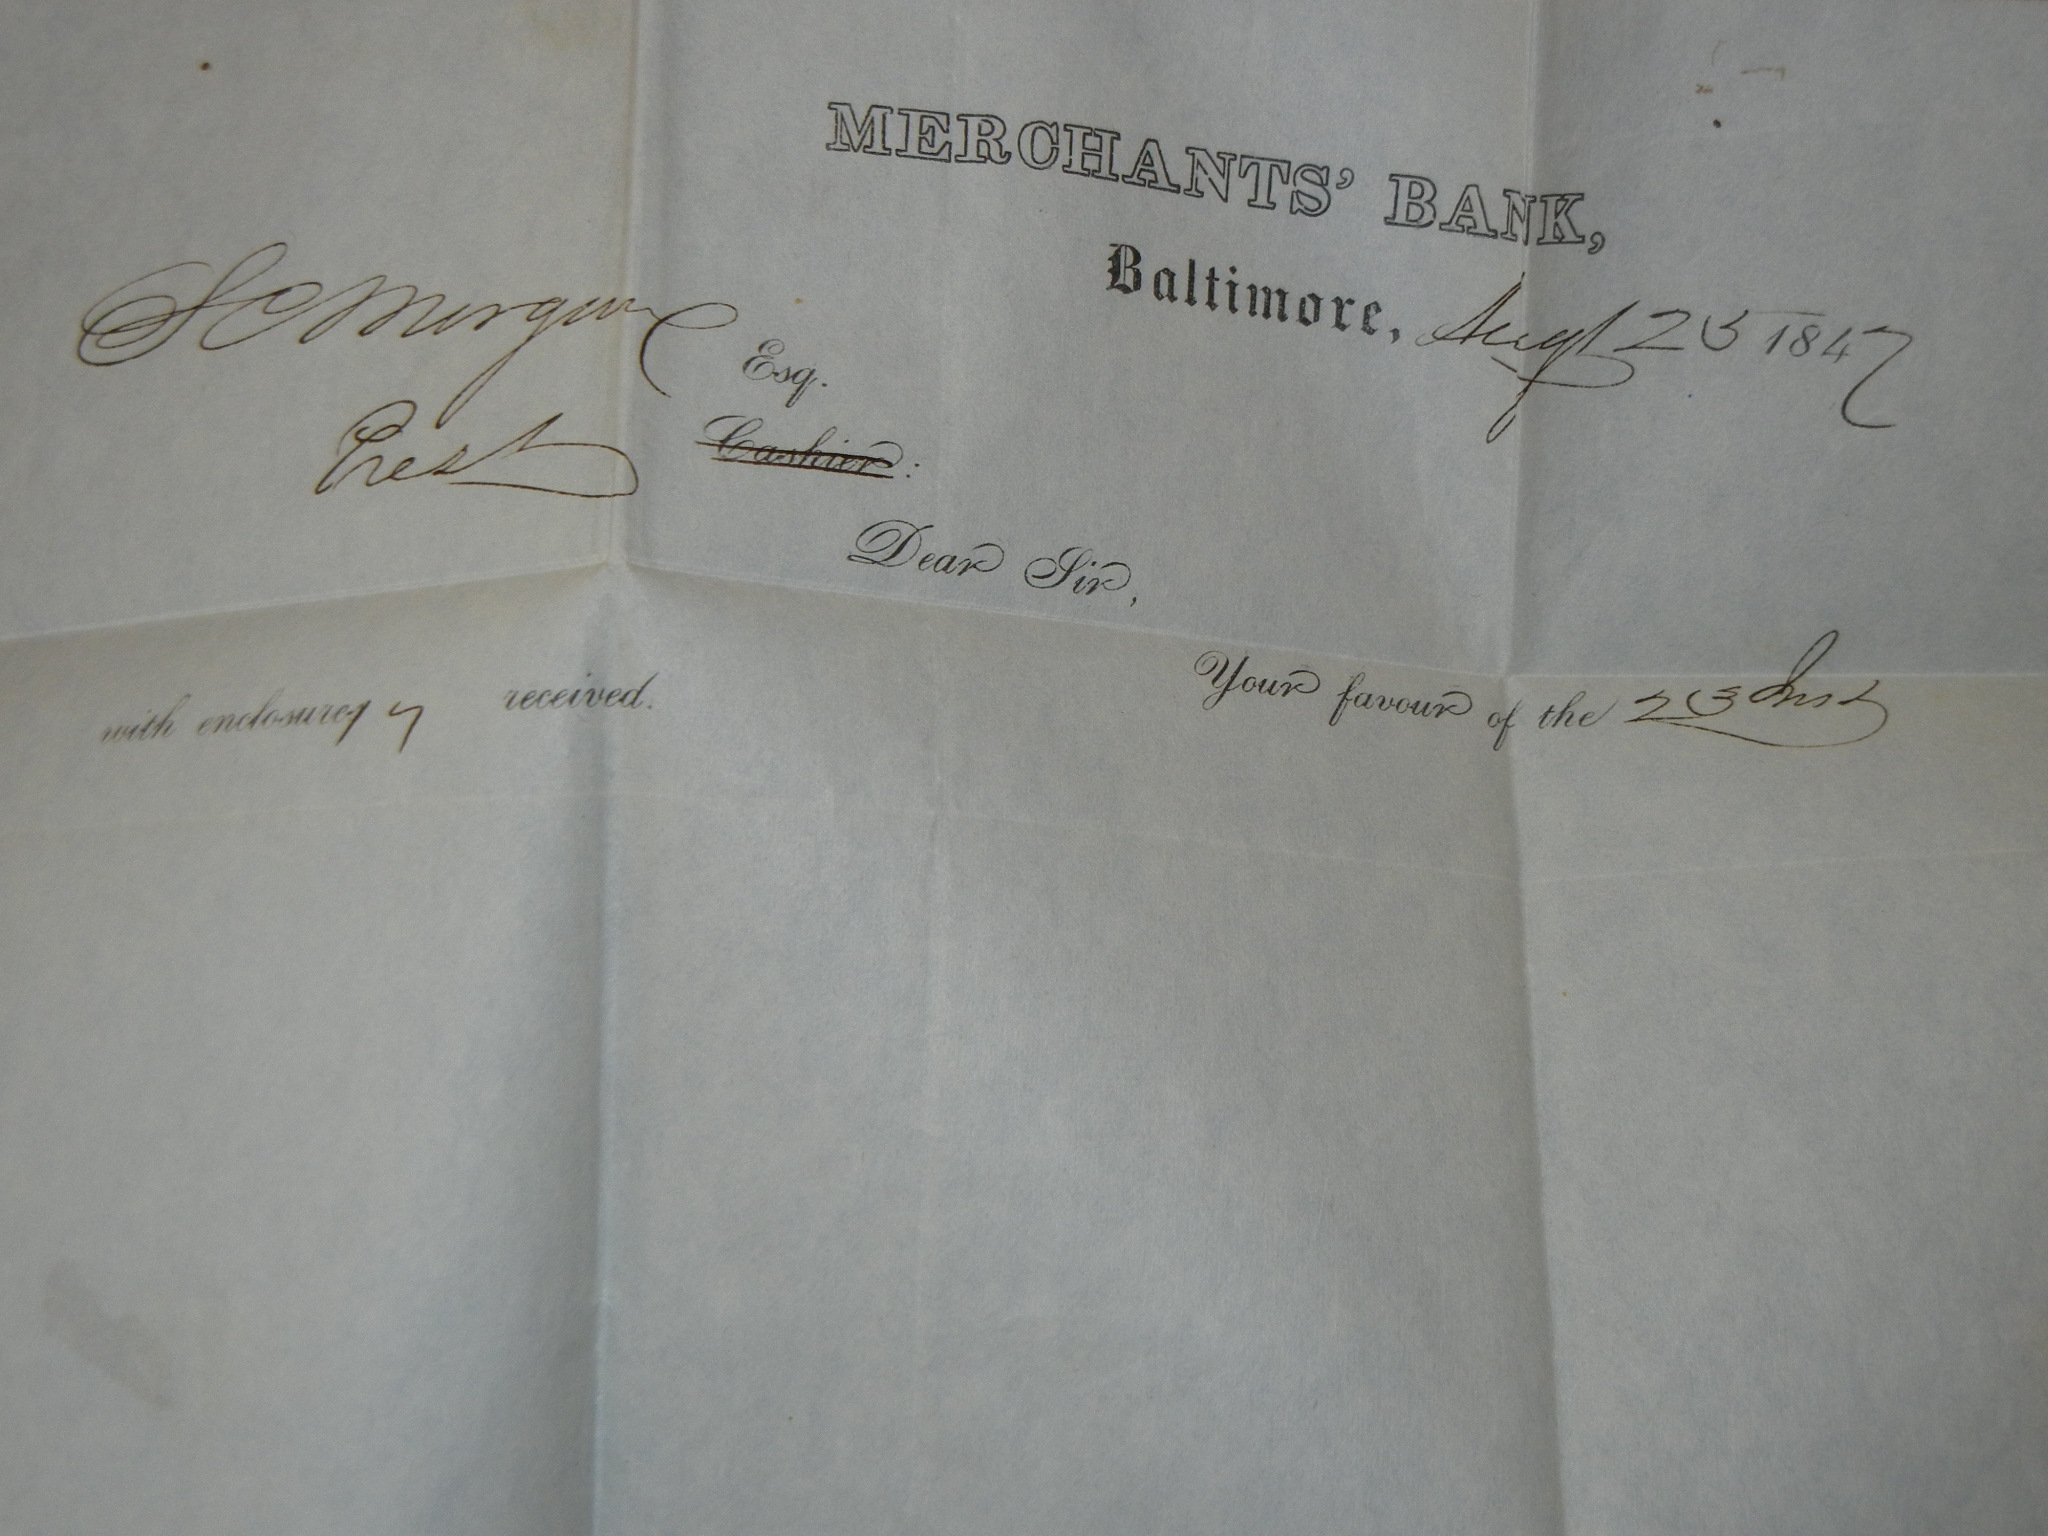 MERCHANTS' BANK,
Baltimore, Augt 25 1847
S C Morgan Esq.
Prest Cashier:
Dear Sir,
Your favour of the 23 Inst
with enclosures received.